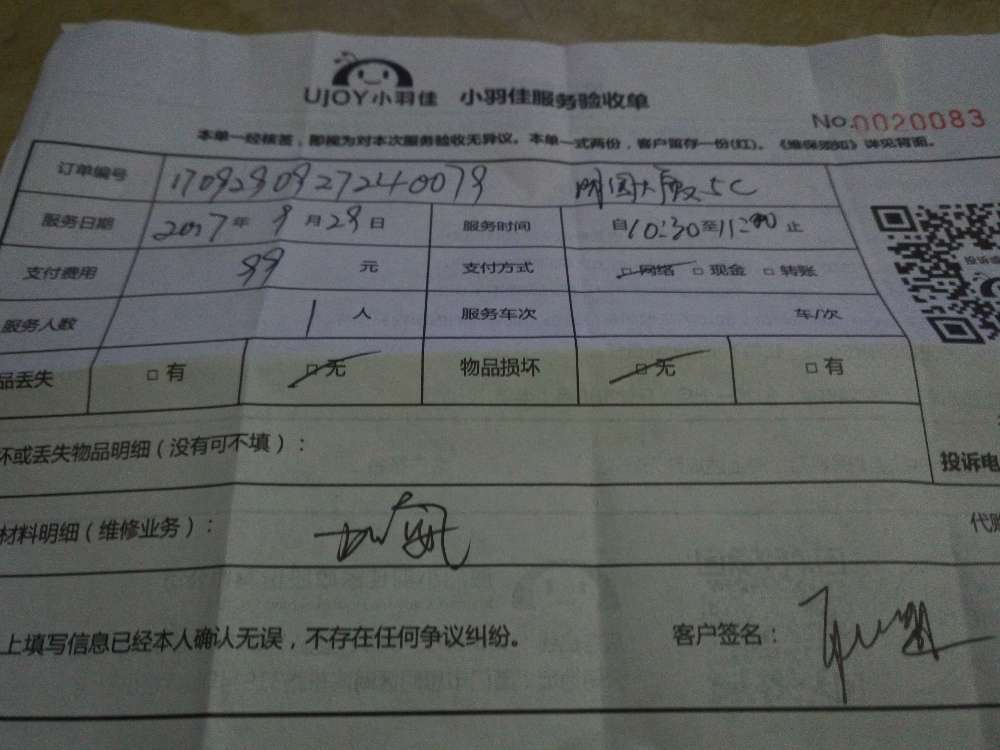 UJOY小羽佳 小羽佳服务验收单
No.0020083
本单一经核签，即视为对本次服务验收无异议。本单一式两份，客户留存一份(红)。《维保须知》详见背面。
订单编号
服务日期 2017年9月29日 服务时间 自10:30至11:00止
支付费用 99元 支付方式 □网络 □现金 □转账
服务人数 1人 服务车次 车/次
品丢失 □有 □无 物品损坏 □无 □有
坏或丢失物品明细（没有可不填）：
投诉电
材料明细（维修业务）：
上填写信息已经本人确认无误，不存在任何争议纠纷。 客户签名：